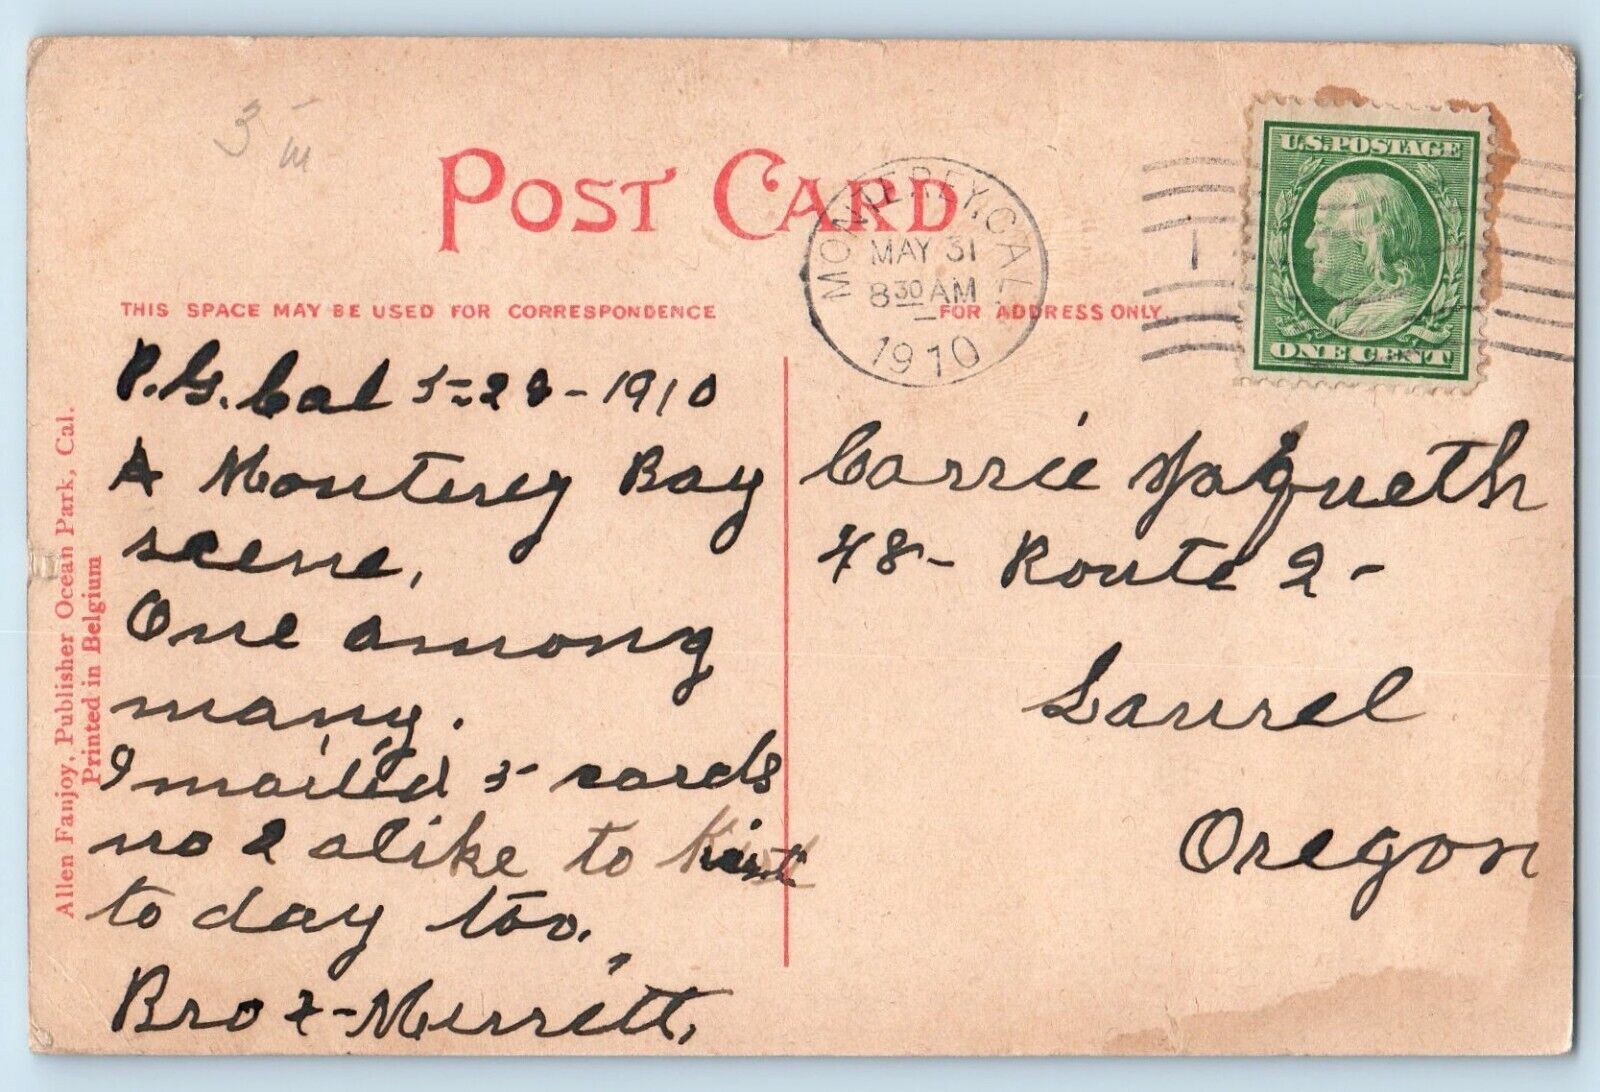 3 m
POST CARD
MONTEREY, CAL.
MAY 31
8 30 AM
1910
1
U.S. POSTAGE
ONE CENT
THIS SPACE MAY BE USED FOR CORRESPONDENCE
FOR ADDRESS ONLY.
P.G. Cal 5-28-1910
A Monterey Bay
scene,
One among
many.
I mailed 5 cards
no 2 alike to
to day too.
Bro -Merritt,
Carrie
48- Route 2-
Laurel
Oregon
Allen Fanjoy, Publisher Ocean Park, Cal.
Printed in Belgium